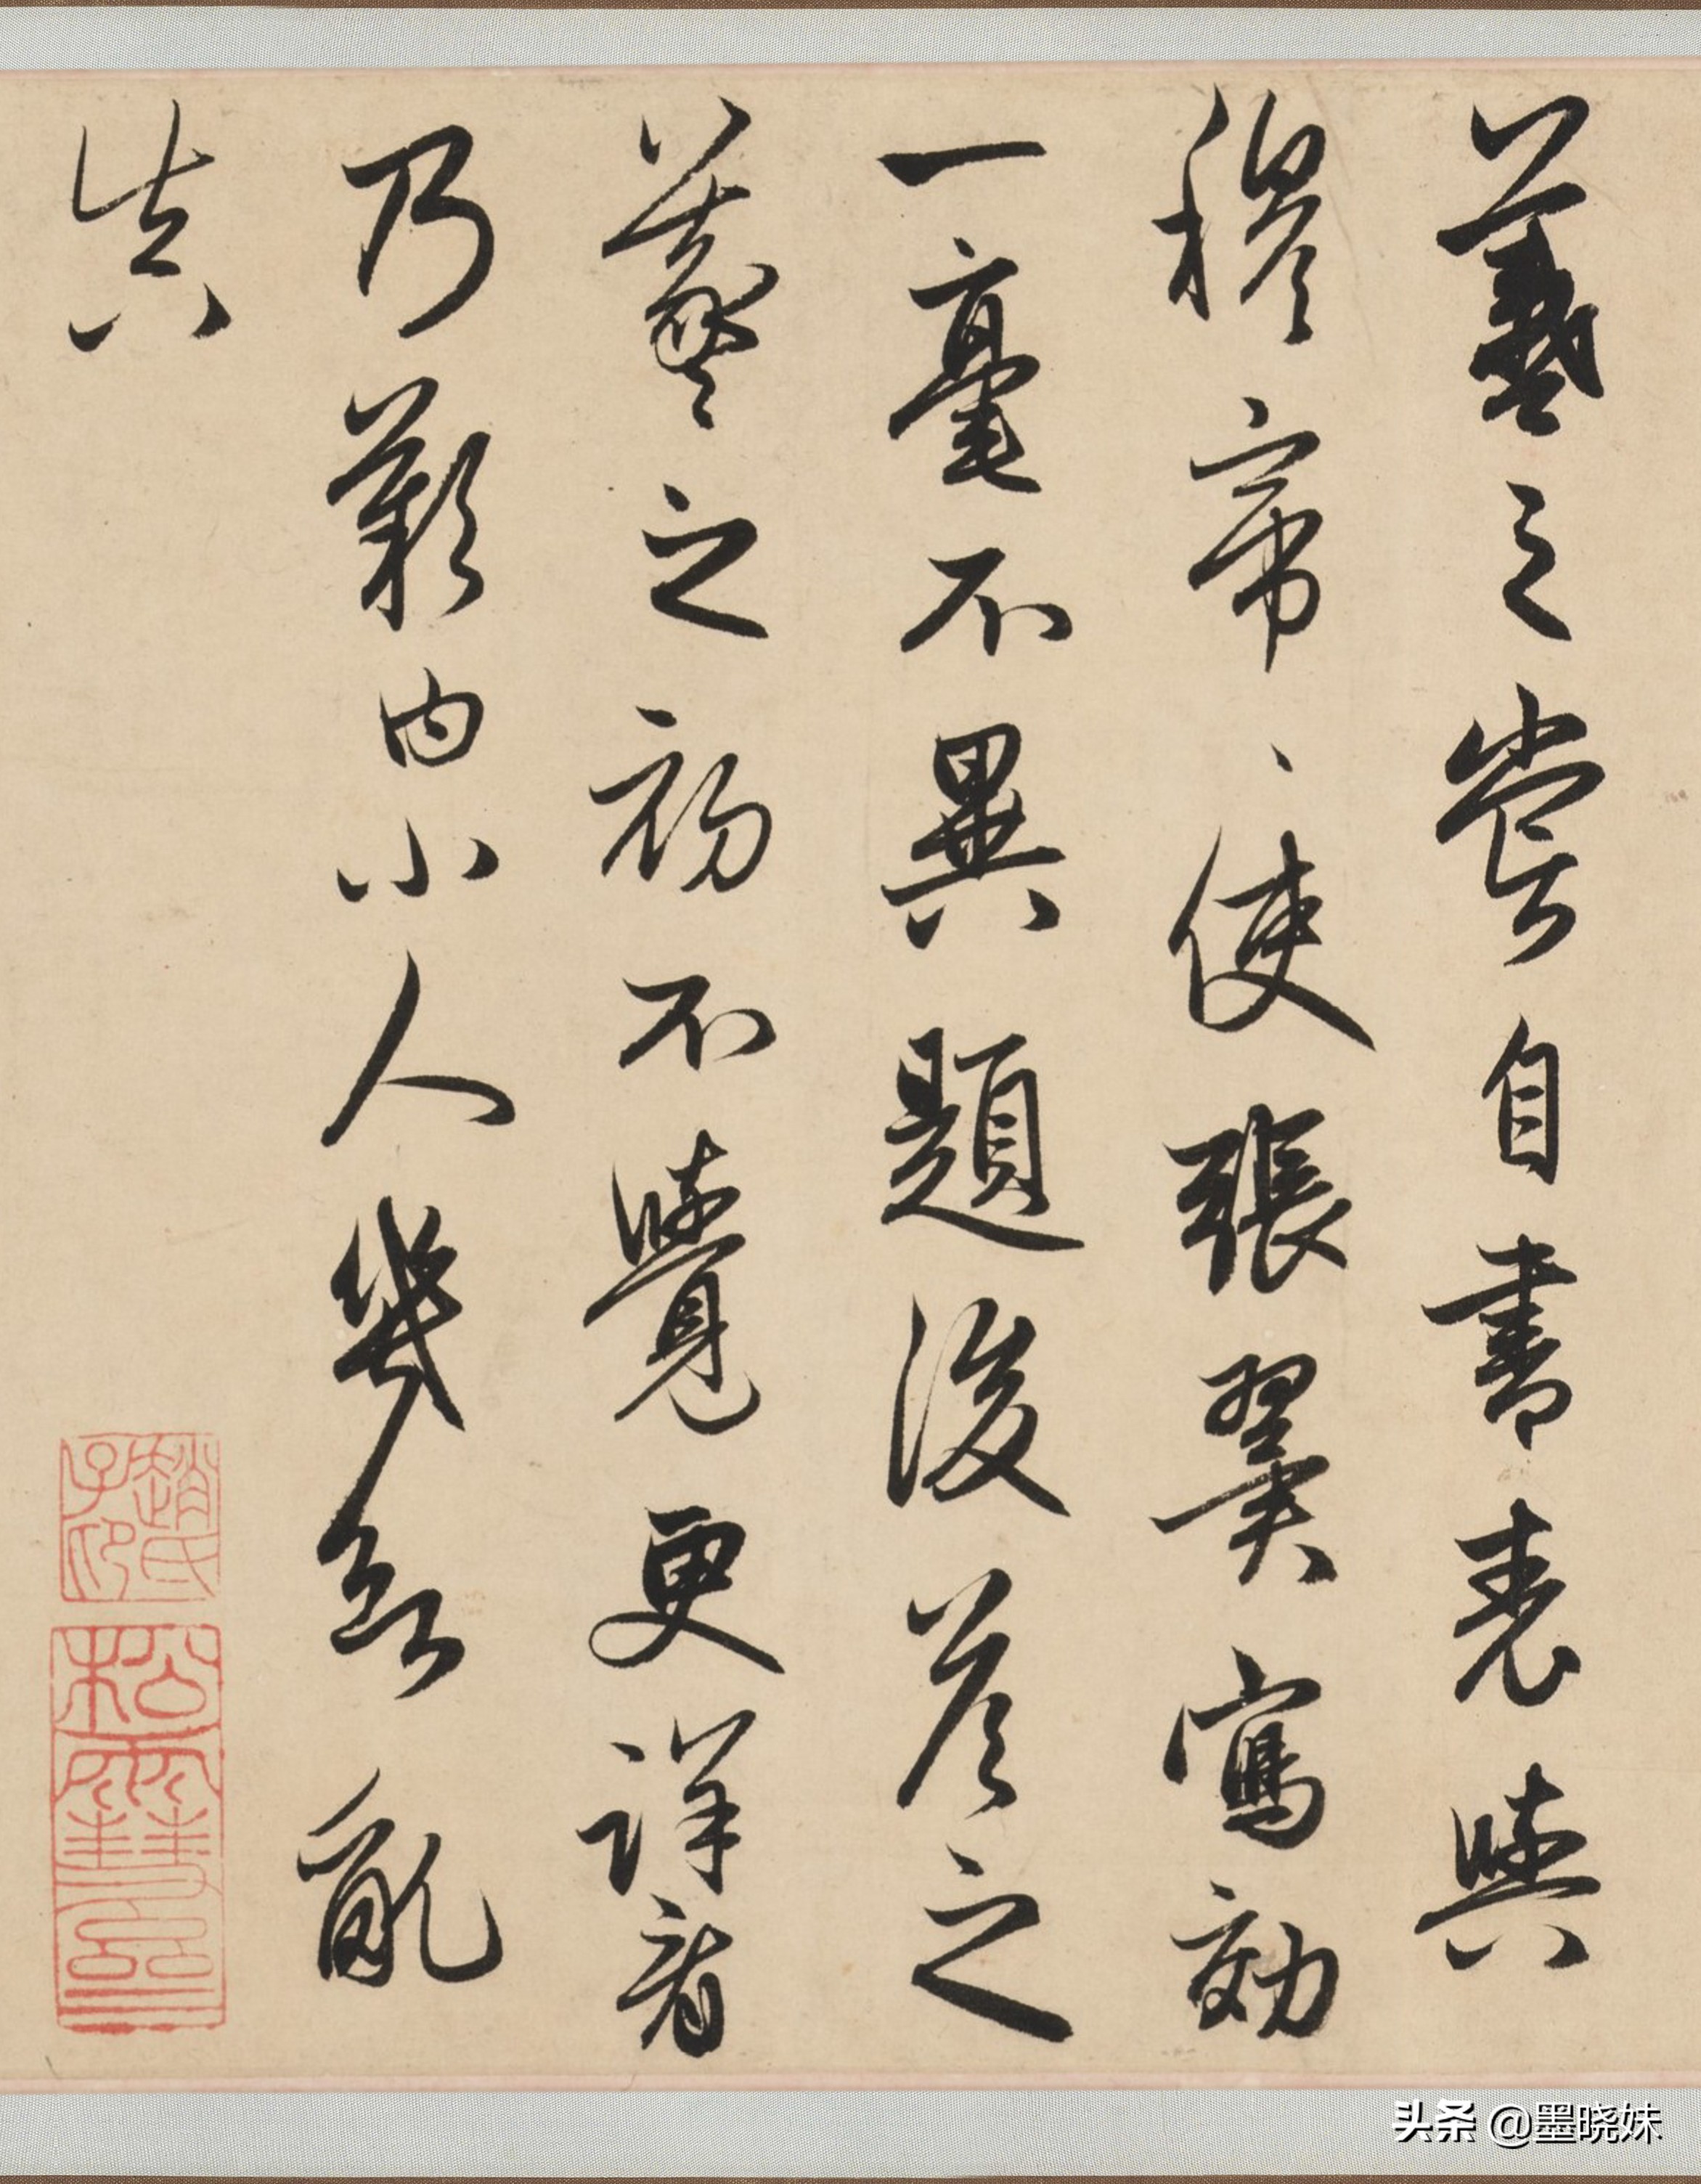 羲之嘗自書表與
穆帝、使張翼寫効
一毫不異題後答之
羲之初不覺更詳看
乃歎曰小人幾欲亂
真
趙氏子印
松雪齋
头条 @墨晓妹